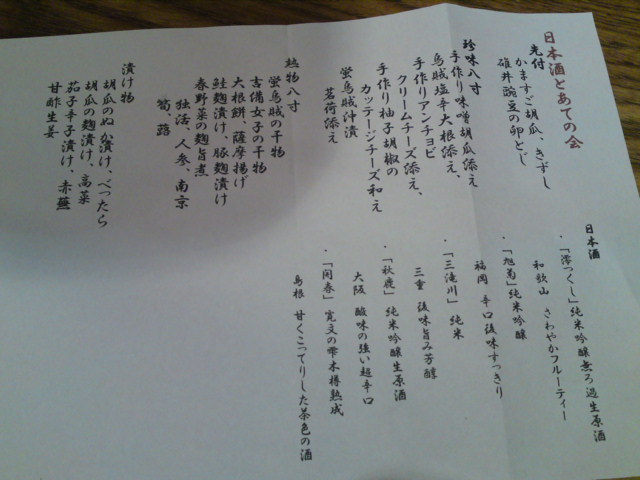 日本酒とあての会
先付
かますご胡瓜、きずし
碓井豌豆の卵とじ
珍味八寸
手作り味噌胡瓜添え
烏賊塩辛大根添え、
手作りアンチョビ
クリームチーズ添え、
手作り柚子胡椒の
カッテージチーズ和え
蛍烏賊沖漬
茗荷添え
焙物八寸
蛍烏賊の干物
吉備女子の干物
大根餅、薩摩揚げ
鮭麹漬け、豚麹漬け
春野菜の麹旨煮
独活、人参、南京
筍、蕗
漬け物
胡瓜のぬか漬け、べったら
胡瓜の麹漬け、高菜
茄子辛子漬け、赤蕪
甘酢生姜
日本酒
・「澪つくし」純米吟醸無ろ過生原酒
和歌山 さわやかフルーティー
・「旭菊」純米吟醸
福岡 辛口後味すっきり
・「三滝川」純米
三重 後味旨み芳醇
・「秋鹿」純米吟醸生原酒
大阪 酸味の強い超辛口
・「開春」寛文の雫木樽熟成
島根 甘くこってりした茶色の酒